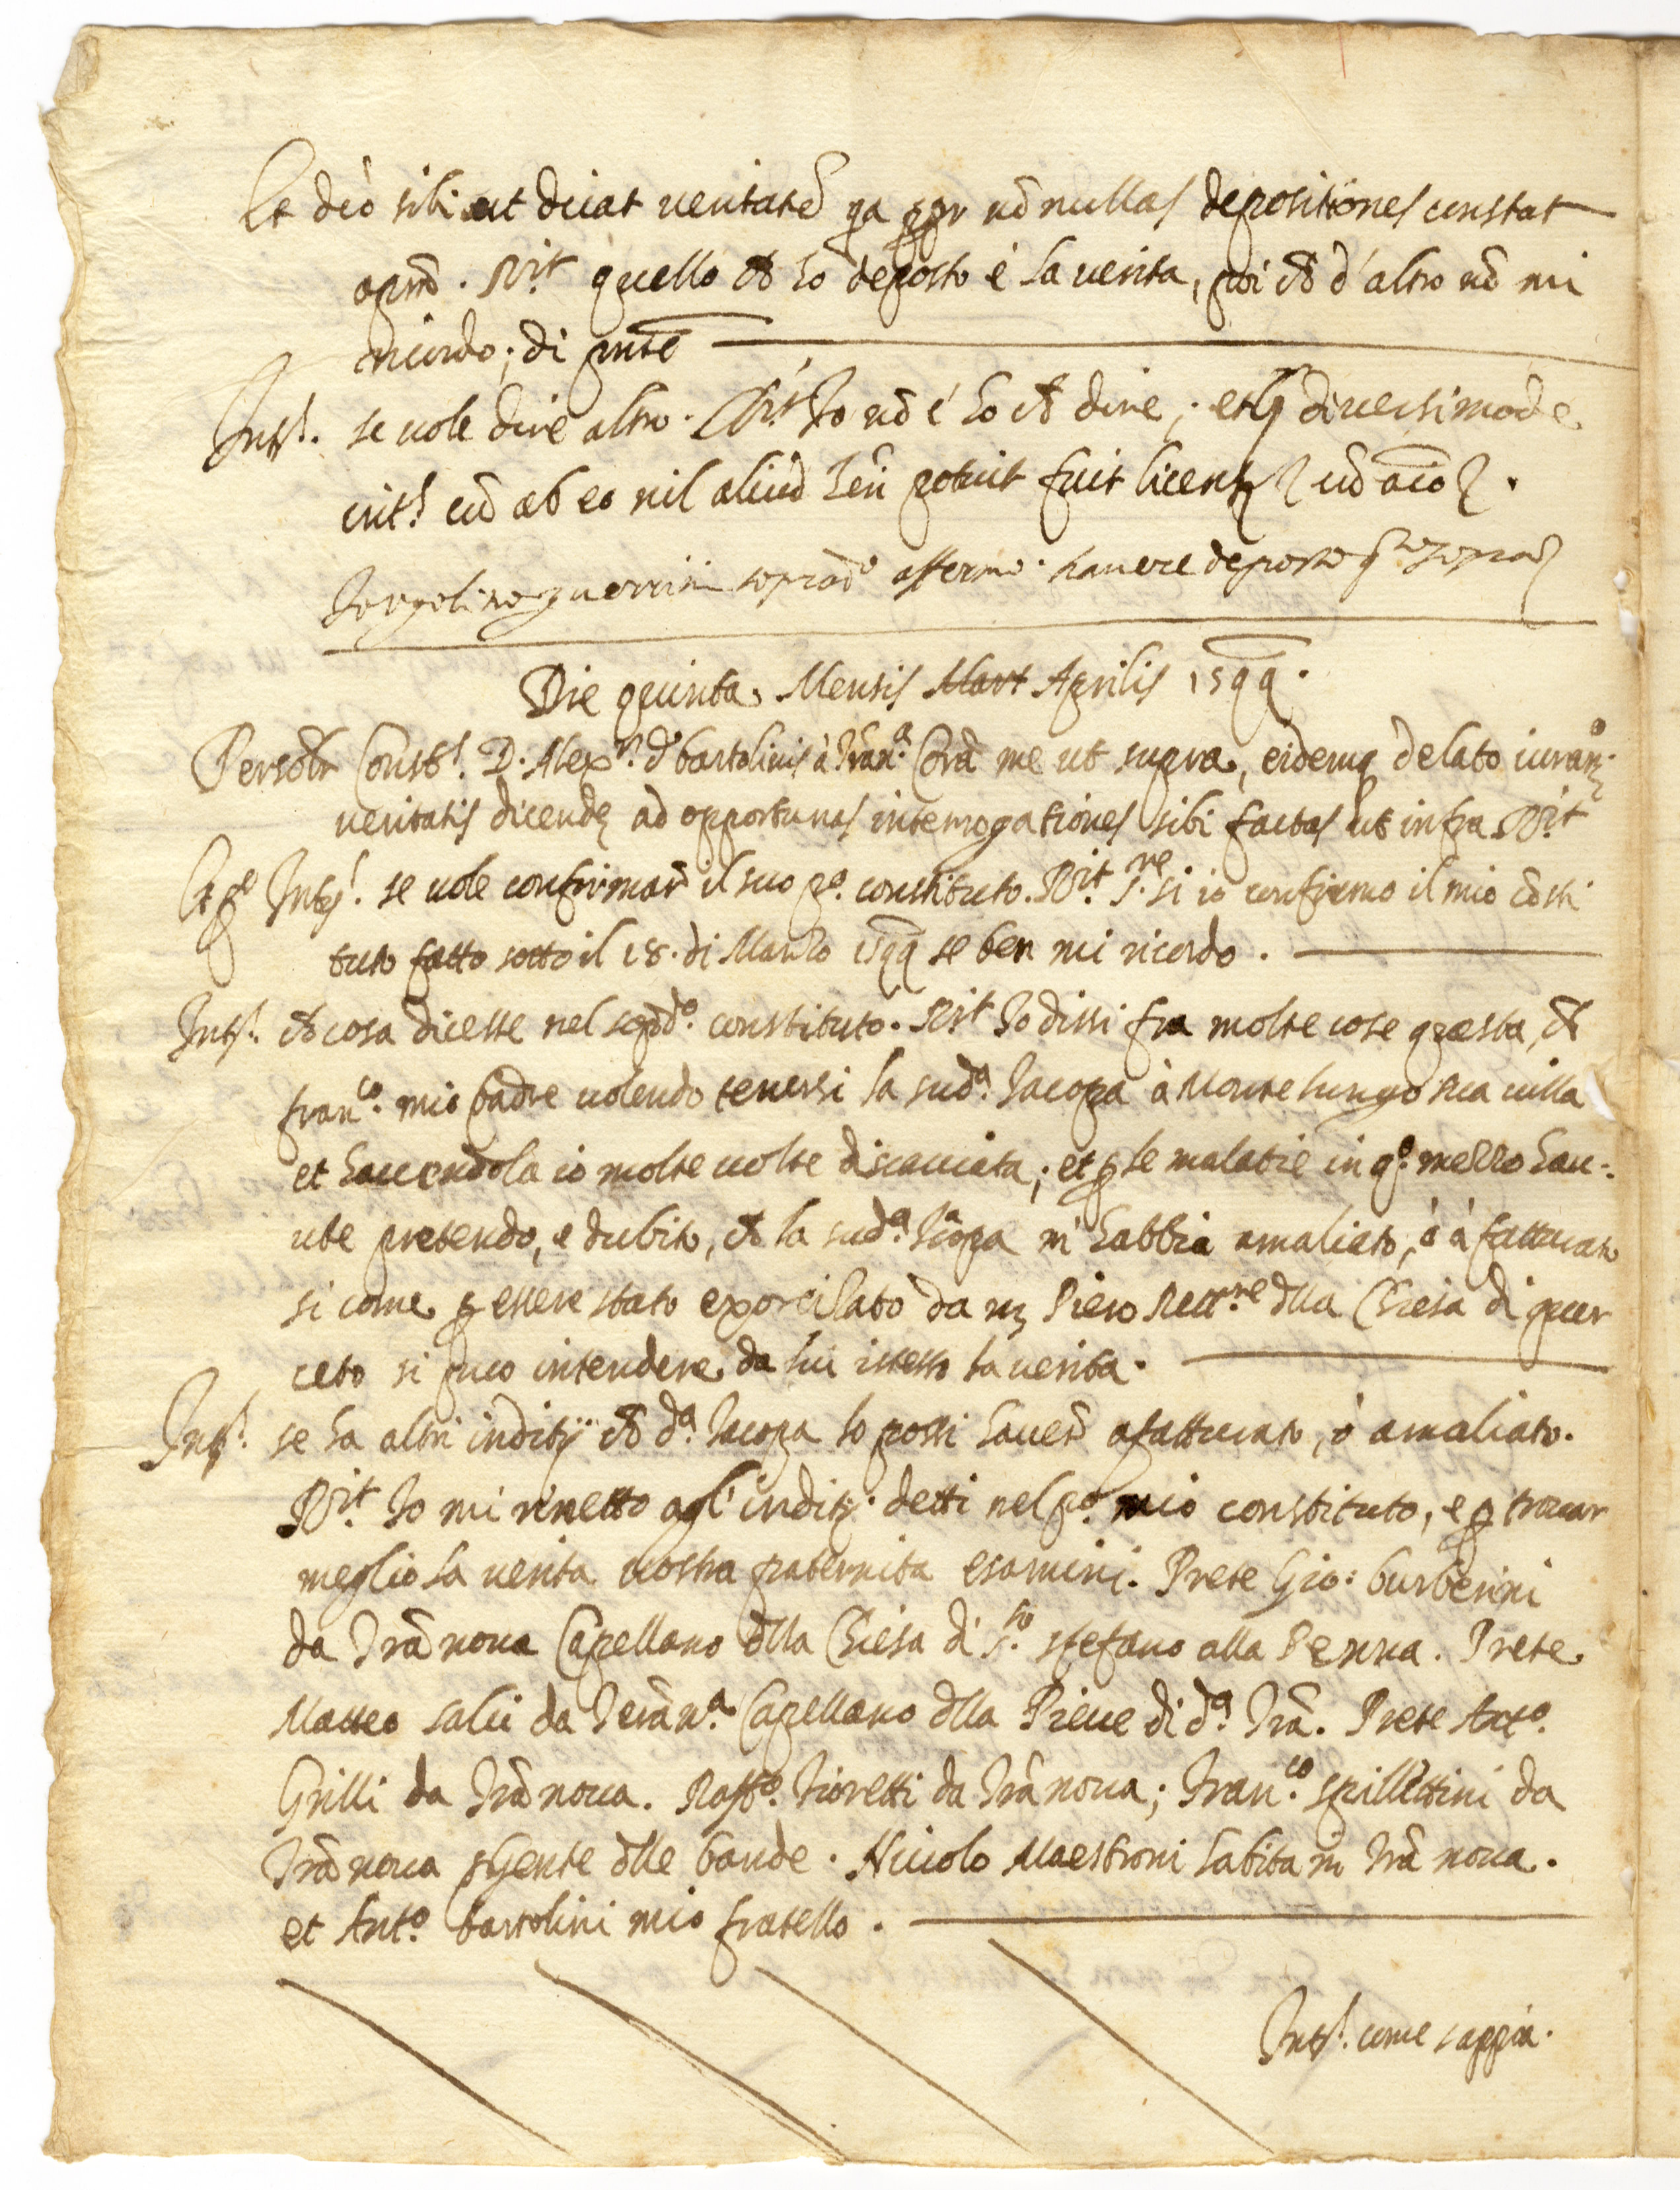 Et dcò sibi ut dicat veritatē qa ppr nō nullas depositiones constat
oppm̄. Rit quello ch ho deposto è la verita, poi ch d'altro nō mi
ricordo; di pnte
Intˢ. se vole dire altro. Rit Io nō é ho ch dire; et diversimode
intˢ cū ab eo nil aliud heri potuit fuit licent cū aīo.
Io ugolino guerrini sopradᵒ affermo havere deposto qᵗᵒ sopra
Die quinta Mensis Mart Aprilis 1599.
Personlr Constˢ. D. Alexʳ. d bartolinis à Trānᵃ. Corā me ut supra, eidemq delato iuranᵒ.
veritatis dicende ad opportunas interrogationes sibi factas ut infra Rit
Et pᵒ Intˢ. se vole confirmar il suo pᵒ. constituto. Rit Sʳᵉ. si io confirmo il mio cōsti
tuto fatto sotto il 18. di Marzo 1599 se ben mi ricordo.
Intˢ. ch cosa dicesse nel sopdᵒ. constituto. Rit Io dissi fra molte cose questa, ch
franᶜᵒ. mio padre volendo tenersi la sudᵃ. Iacopa à Monte lungo sua villa
et havendola io molte volte discacciata; et p le malatie in qᵒ. mezzo hau-
ute pretendo, e dubito, ch la sudᵃ. Iacopa m' habbia amaliato, ó á fatturato
si come p essere stato exorcilato da m Piero Rettʳᵉ dlla Chiesa di quer
ceto si puo intendere da lui istesso la verita.
Intˢ. se ha altri inditij ch dᵃ. Iacopa lo possi haver afatturato, ó amaliato.
Rit Io mi rimetto agl' inditij detti nel pᵒ. mio constituto, e p trovar
meglio la verita vostra paternita esamini. Prete Gio: burberini
da Trā nova Capellano dlla Chiesa di Sᵗᵒ. stefano alla Penna. Prete
Matteo salui da Terānᵃ. Capellano dlla Pieve di dᵃ. Trā. Prete Antᵒ.
Grilli da Trā nova. Raffᵒ. Fioretti da Trā nova; Franᶜᵒ. spillettini da
Trā nova sgente dlle bande. Niccolo Maestroni habita in Trā nova.
et Antᵒ. bartolini mio fratello.
Intˢ. come sappia.